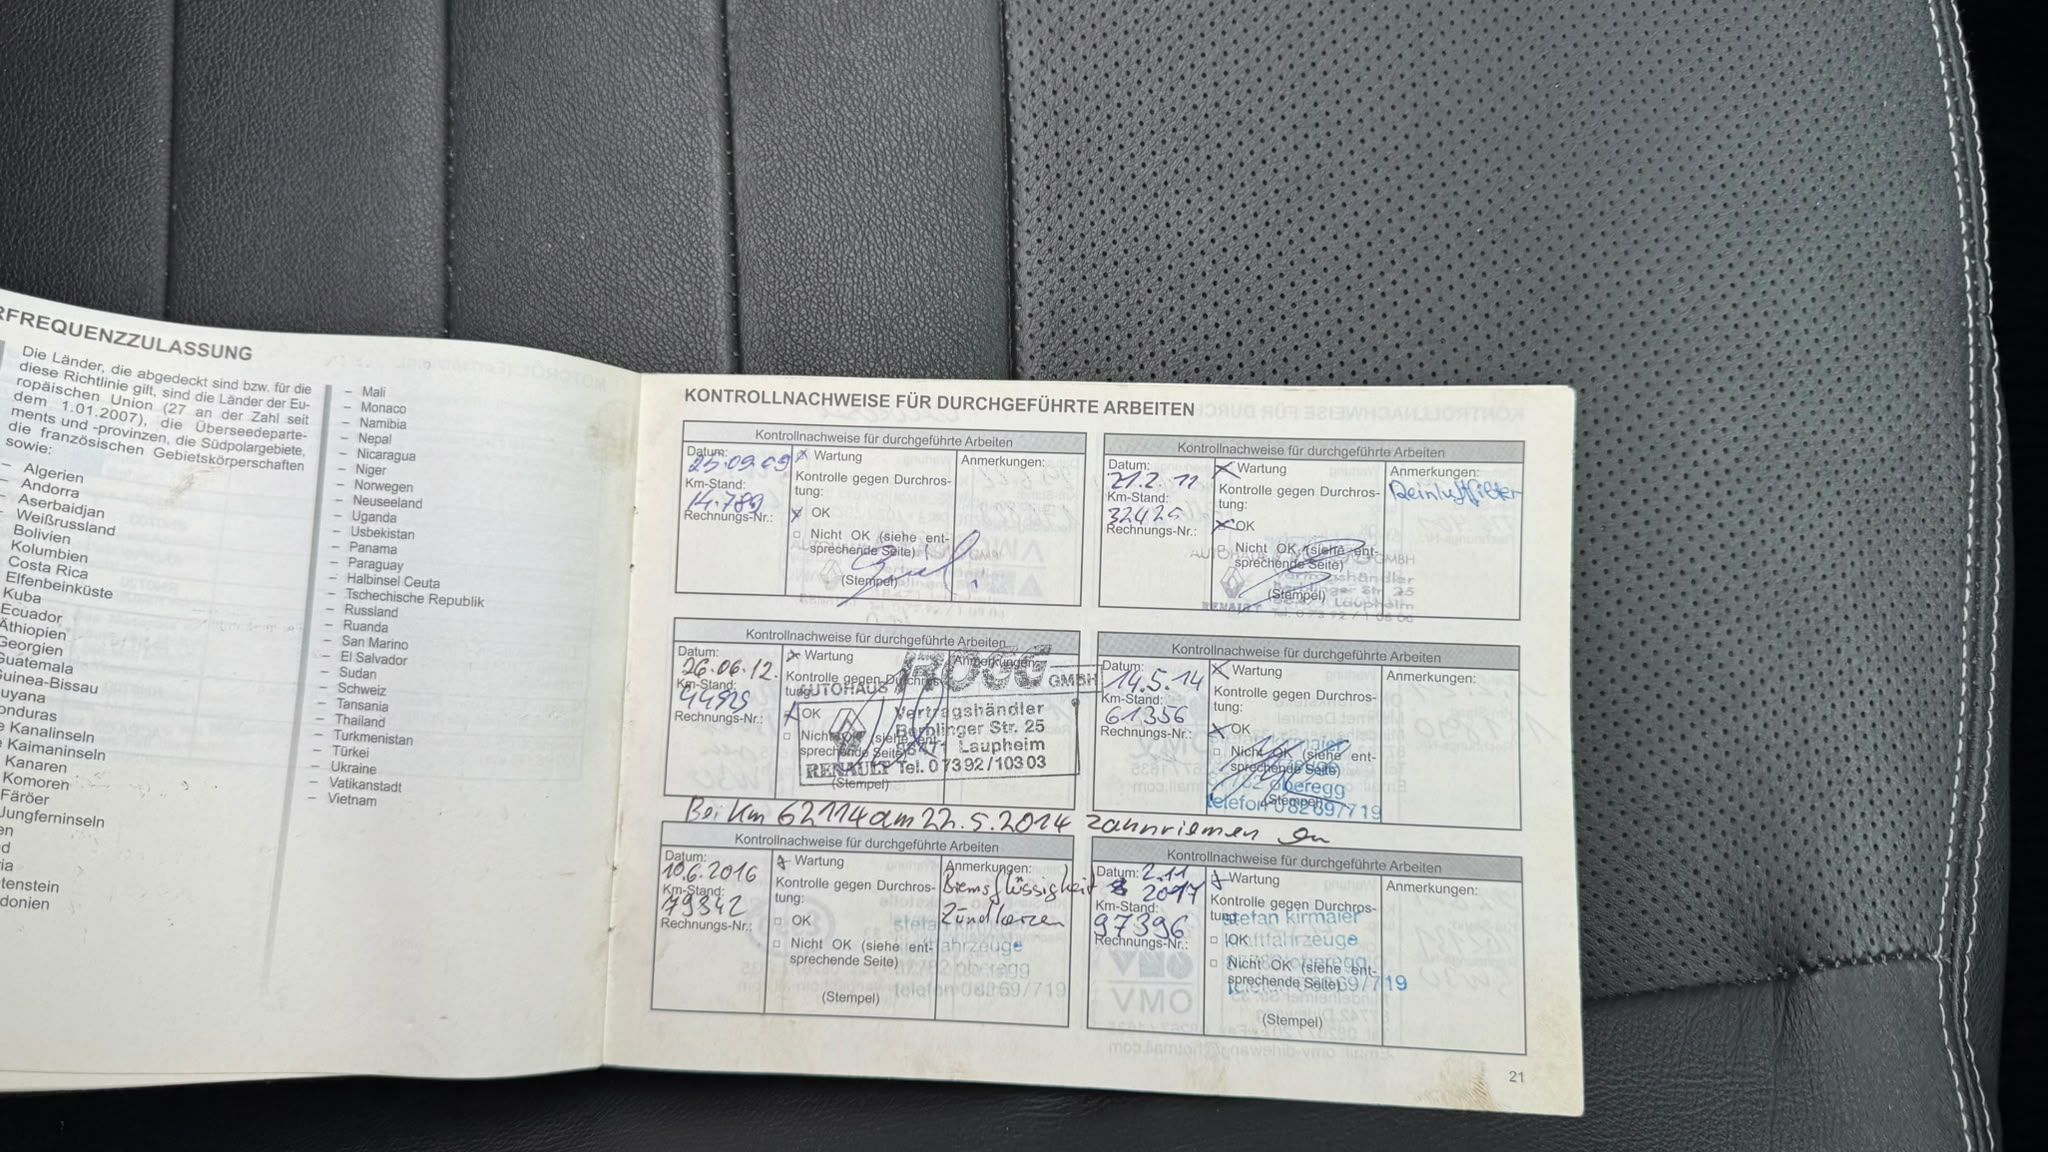 RFREQUENZZULASSUNG
Die Länder, die abgedeckt sind bzw. für die
diese Richtlinie gilt, sind die Länder der Eu-
ropäischen Union (27 an der Zahl seit
dem 1.01.2007), die Überseedeparte-
ments und -provinzen, die Südpolargebiete,
die französischen Gebietskörperschaften
sowie:
– Algerien
– Andorra
– Aserbaidjan
– Weißrussland
Bolivien
Kolumbien
Costa Rica
Elfenbeinküste
Kuba
Ecuador
Äthiopien
Georgien
Guatemala
Guinea-Bissau
uyana
onduras
e Kanalinseln
e Kaimaninseln
Kanaren
Komoren
Färöer
Jungferninseln
en
d
ia
tenstein
donien
– Mali
– Monaco
– Namibia
– Nepal
– Nicaragua
– Niger
– Norwegen
– Neuseeland
– Uganda
– Usbekistan
– Panama
– Paraguay
– Halbinsel Ceuta
– Tschechische Republik
– Russland
– Ruanda
– San Marino
– El Salvador
– Sudan
– Schweiz
– Tansania
– Thailand
– Turkmenistan
– Türkei
– Ukraine
– Vatikanstadt
– Vietnam
KONTROLLNACHWEISE FÜR DURCHGEFÜHRTE ARBEITEN
Kontrollnachweise für durchgeführte Arbeiten
Datum:
25.09.09
Km-Stand:
14.789
Rechnungs-Nr.:
x Wartung
Kontrolle gegen Durchros-
tung:
x OK
Nicht OK (siehe ent-
sprechende Seite)
(Stempel)
Anmerkungen:
Kontrollnachweise für durchgeführte Arbeiten
Datum:
21.2.11
Km-Stand:
32425
Rechnungs-Nr.:
x Wartung
Kontrolle gegen Durchros-
tung:
x OK
Nicht OK (siehe ent-
sprechende Seite)
(Stempel)
AUTOHAUS GMBH
Vertragshändler
Str. 25
Laupheim
RENAULT
Anmerkungen:
Reinluftfilter
Kontrollnachweise für durchgeführte Arbeiten
Datum:
26.06.12.
Km-Stand:
Rechnungs-Nr.:
x Wartung
Kontrolle gegen Durchros-
tung:
x OK
Nicht OK (siehe ent-
sprechende Seite)
(Stempel)
Anmerkungen:
AUTOHAUS GMBH
Vertragshändler
Str. 25
Laupheim
RENAULT Tel. 07392/10303
Kontrollnachweise für durchgeführte Arbeiten
Datum:
14.5.14
Km-Stand:
61356
Rechnungs-Nr.:
x Wartung
Kontrolle gegen Durchros-
tung:
x OK
Nicht OK (siehe ent-
sprechende Seite)
(Stempel)
oberegg
telefon 08269/719
Anmerkungen:
Bei Km 62114 am 22.5.2014 Zahnriemen
Kontrollnachweise für durchgeführte Arbeiten
Datum:
10.6.2016
Km-Stand:
79342
Rechnungs-Nr.:
x Wartung
Kontrolle gegen Durchros-
tung:
OK
Nicht OK (siehe ent-
sprechende Seite)
(Stempel)
Anmerkungen:
Bremsflüssigkeit
Zündkerzen
stefan kirmaier
kraftfahrzeuge
oberegg
telefon 08269/719
Kontrollnachweise für durchgeführte Arbeiten
Datum:
2.11
2017
Km-Stand:
97396
Rechnungs-Nr.:
x Wartung
Kontrolle gegen Durchros-
tung:
OK
Nicht OK (siehe ent-
sprechende Seite)
(Stempel)
stefan kirmaier
kraftfahrzeuge
oberegg
telefon 08269/719
Anmerkungen:
21